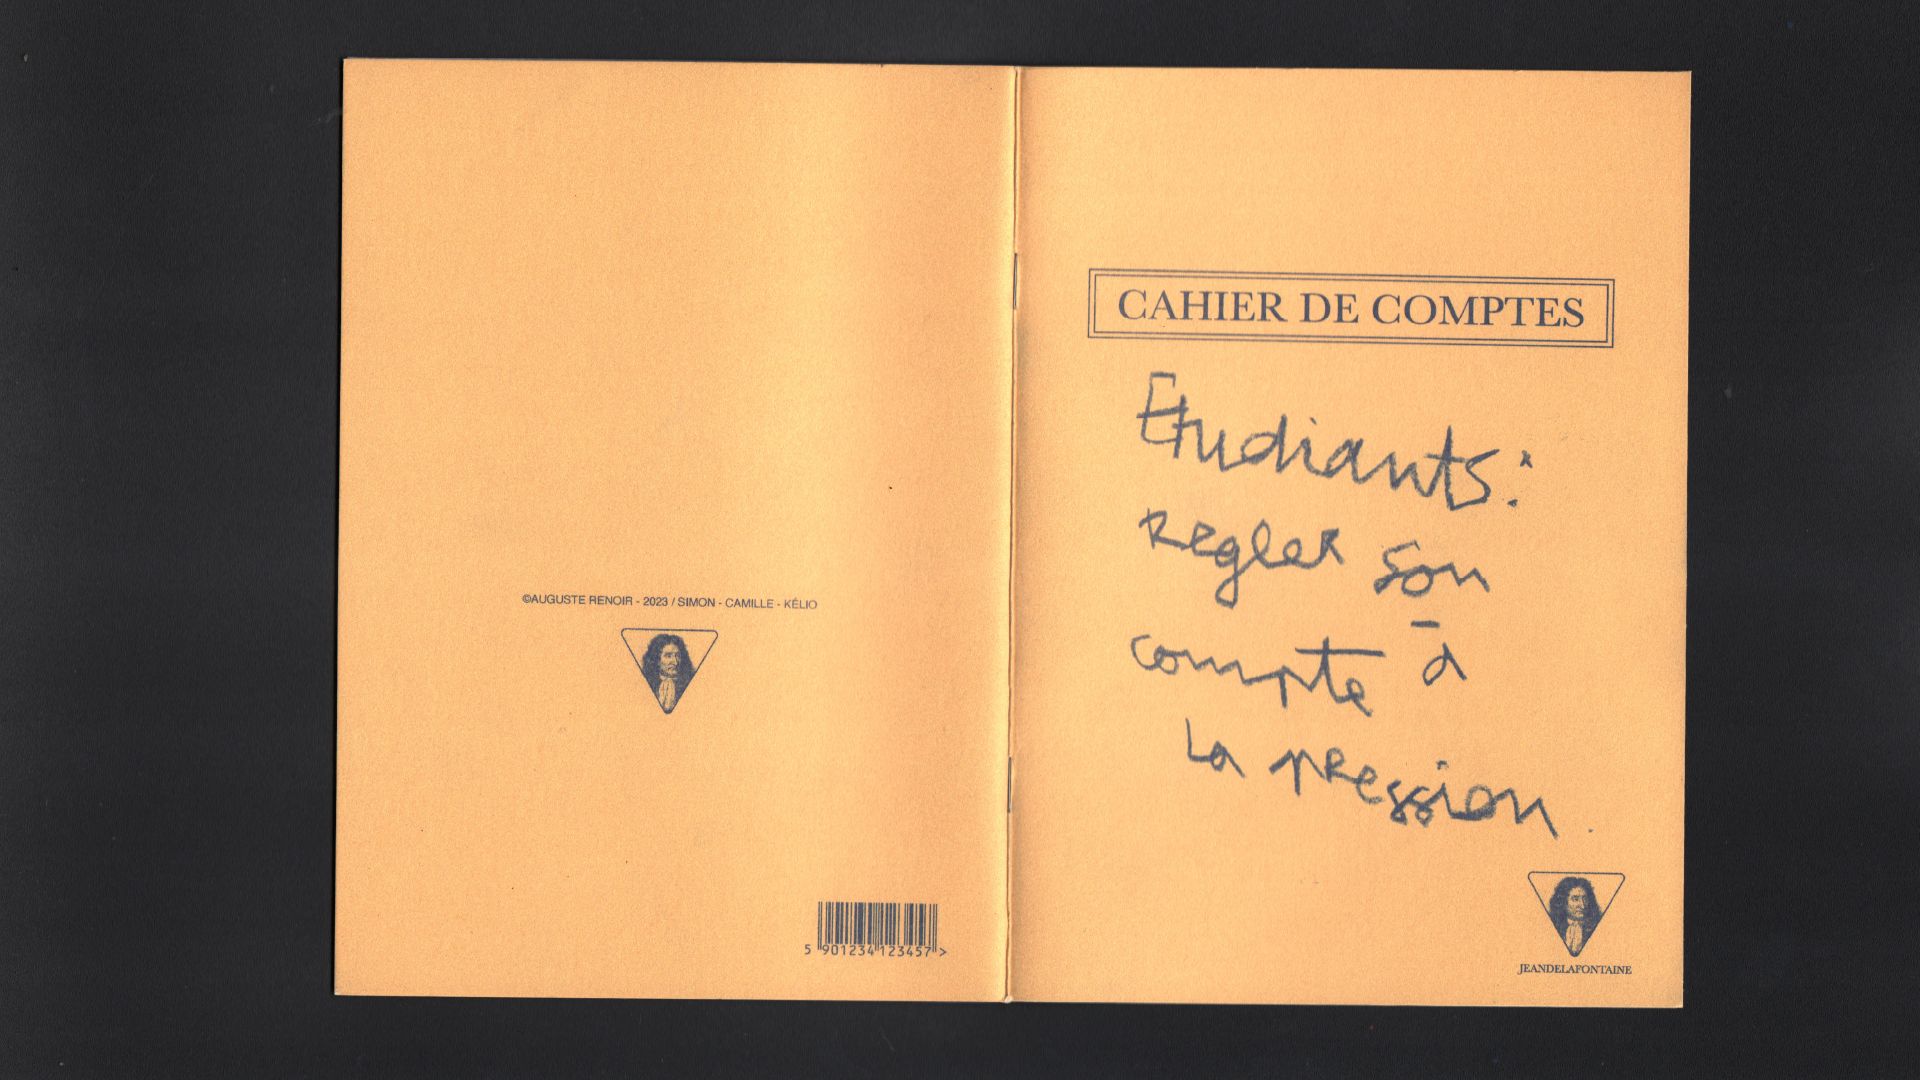 ©AUGUSTE RENOIR - 2023 / SIMON - CAMILLE - KÉLIO
5 901234 123457 >
CAHIER DE COMPTES
Etudiants:
Regler son
compte à
La pression.
JEANDELAFONTAINE